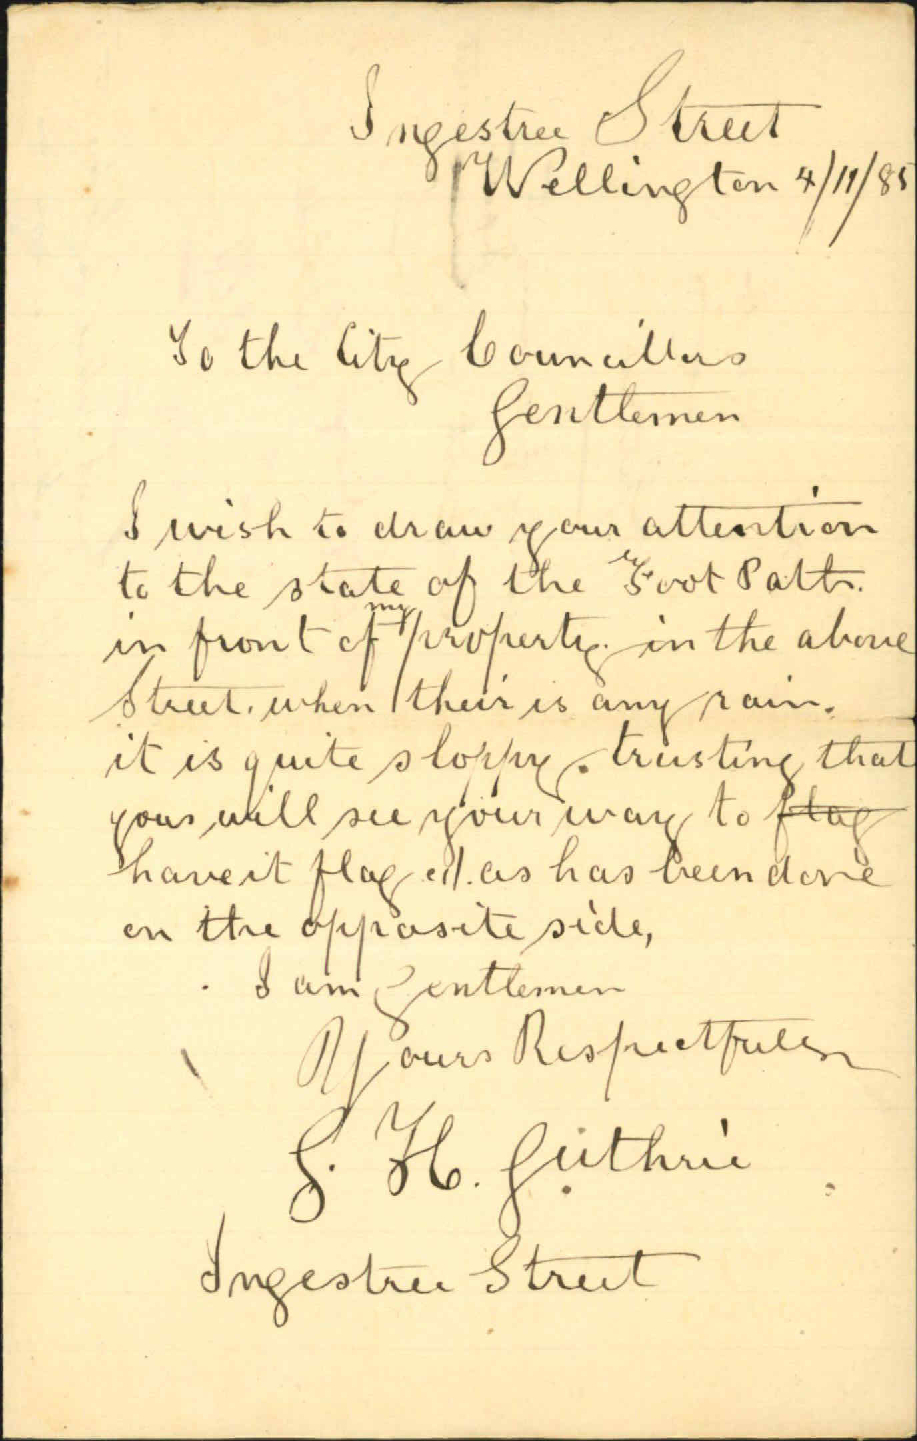 Ingestree Street
Wellington 4/11/85
To the City Councillors
Gentlemen
I wish to draw your attention
to the state of the Foot Path.
in front of my property. in the above
Street. when their is any rain.
it is quite sloppy. trusting that
you will see your way to flag
have it flaged. as has been done
on the opposite side,
I am Gentlemen
Yours Respectfully
G. H. Guthrie
Ingestree Street